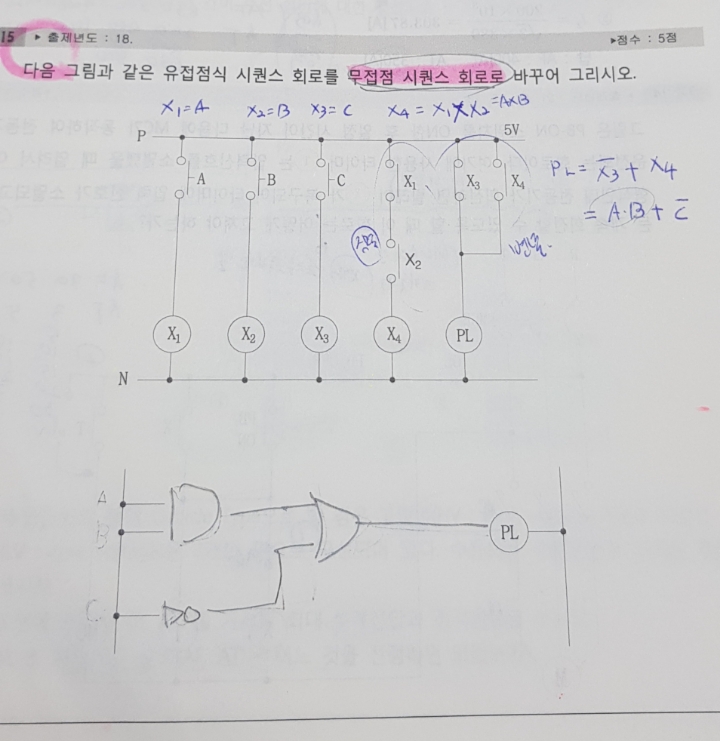 15 ▸ 출제년도 : 18. ▸점수 : 5점
다음 그림과 같은 유접점식 시퀀스 회로를 무접점 시퀀스 회로로 바꾸어 그리시오.
X₁=A X₂=B X₃=C X₄ = X₁×X₂=A×B
P 5V
A B C X₁ X₃ X₄
PL = X̅₃ + X₄
= A·B + C̅
직렬 X₂ 병렬
X₁ X₂ X₃ X₄ PL
N
A
B PL
C